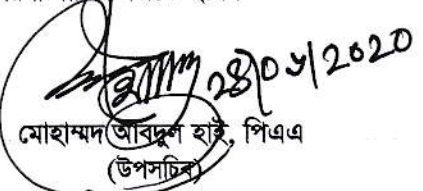 ২৪/০৬/2020
মোহাম্মদ আবদুল হাই, পিএএ
(উপসচিব)